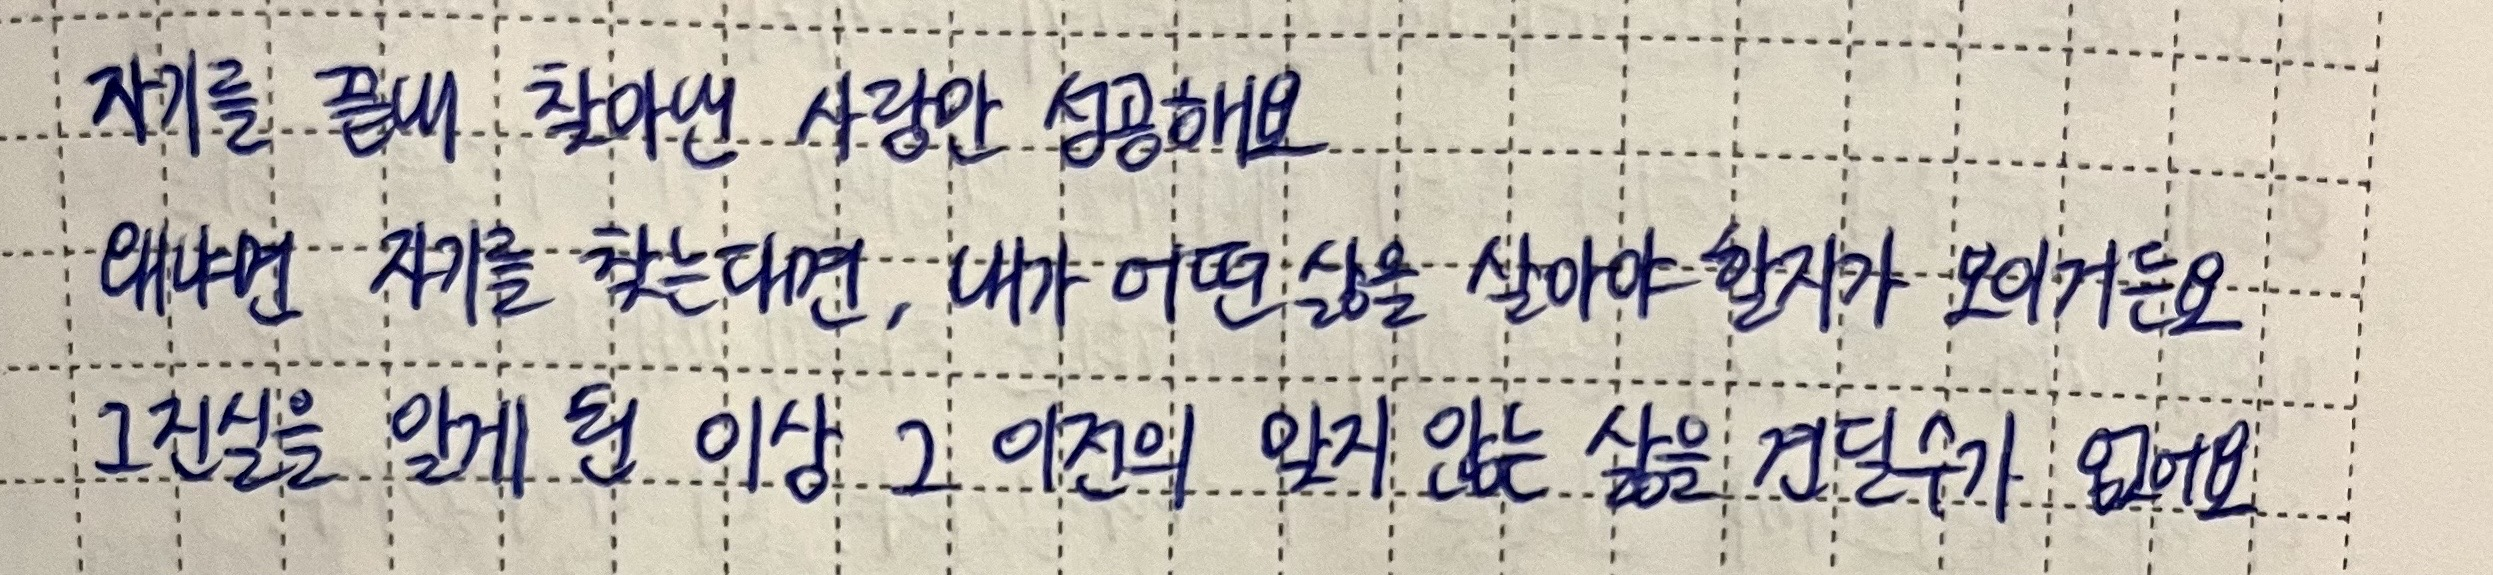 자기를 끝내 찾아낸 사람만 성공해요
왜냐면 자기를 찾는다면, 내가 어떤 삶을 살아야 할지가 보이거든요
그 진실을 알게 된 이상 그 이전의 맞지 않는 삶을 견딜 수가 없어요